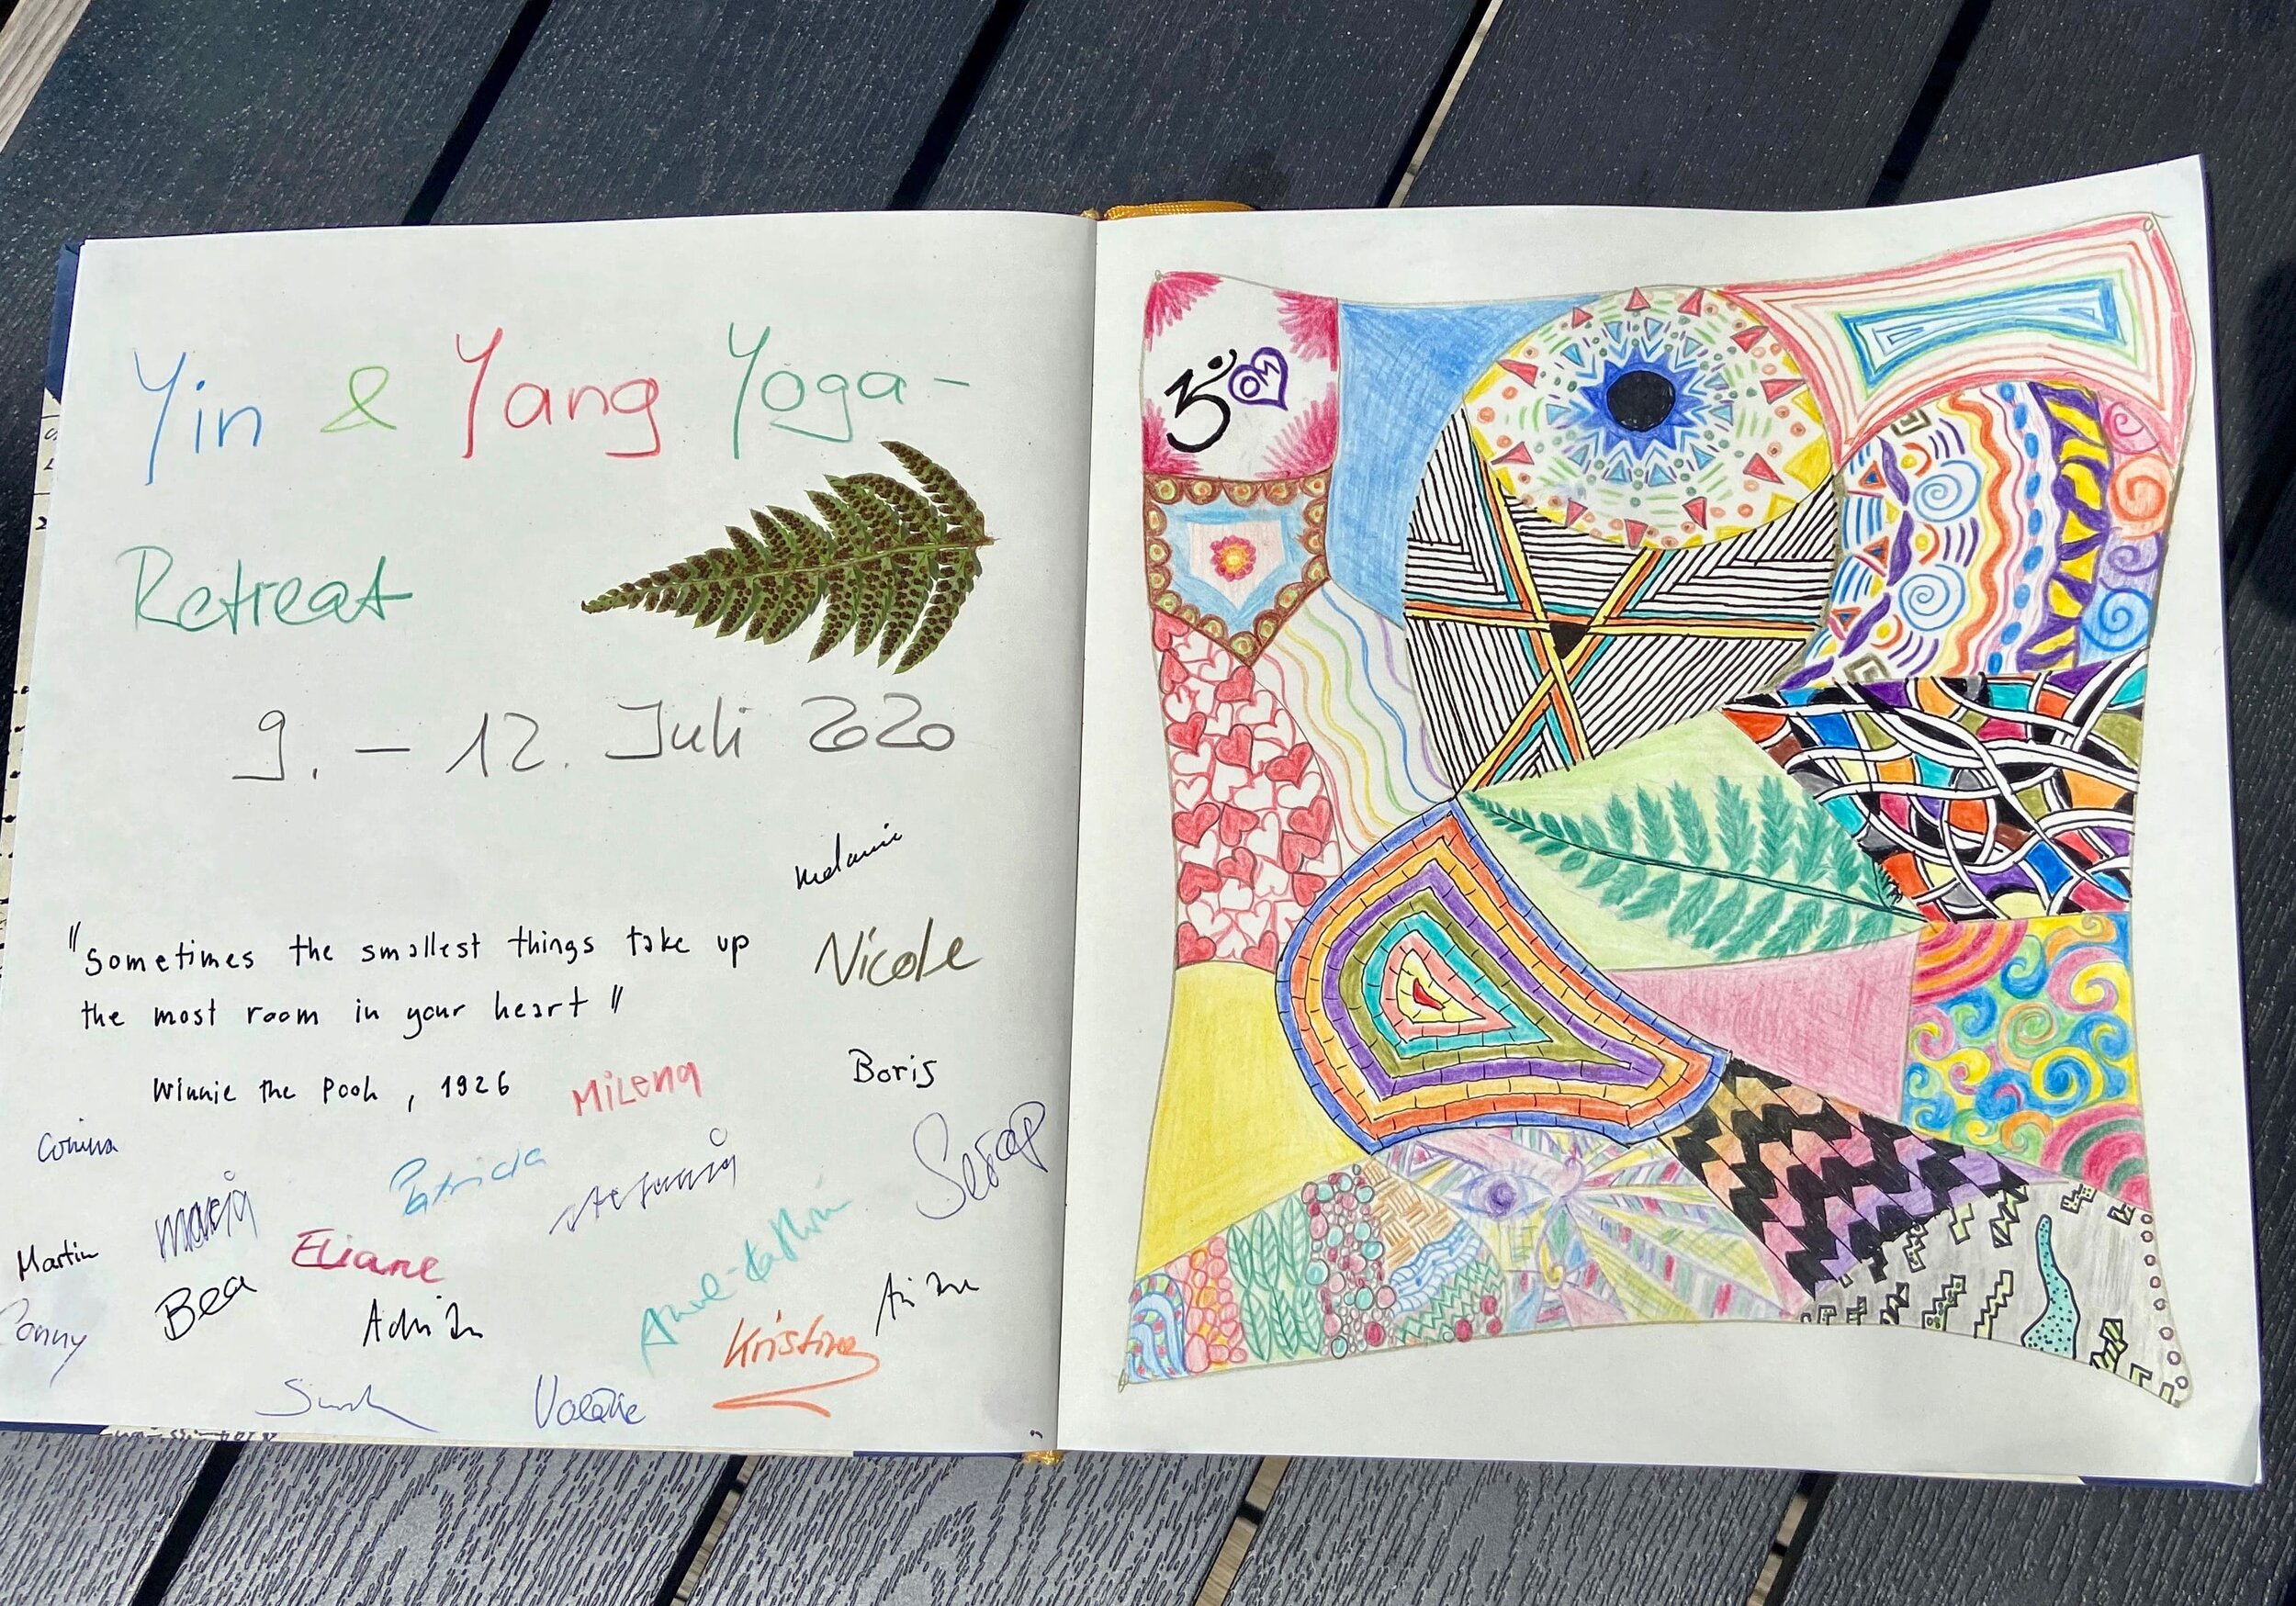 Yin & Yang Yoga-
Retreat
9. – 12. Juli 2020
Melanie
"Sometimes the smallest things take up
the most room in your heart"
Nicole
Winnie the Pooh, 1926
MiLena
Boris
Corinna
Patricia
Stefania
Serap
Maria
Martin
Eliane
Anne-Kathrin
Bea
Conny
Adrian
Kristina
Valerie
ॐ
OM